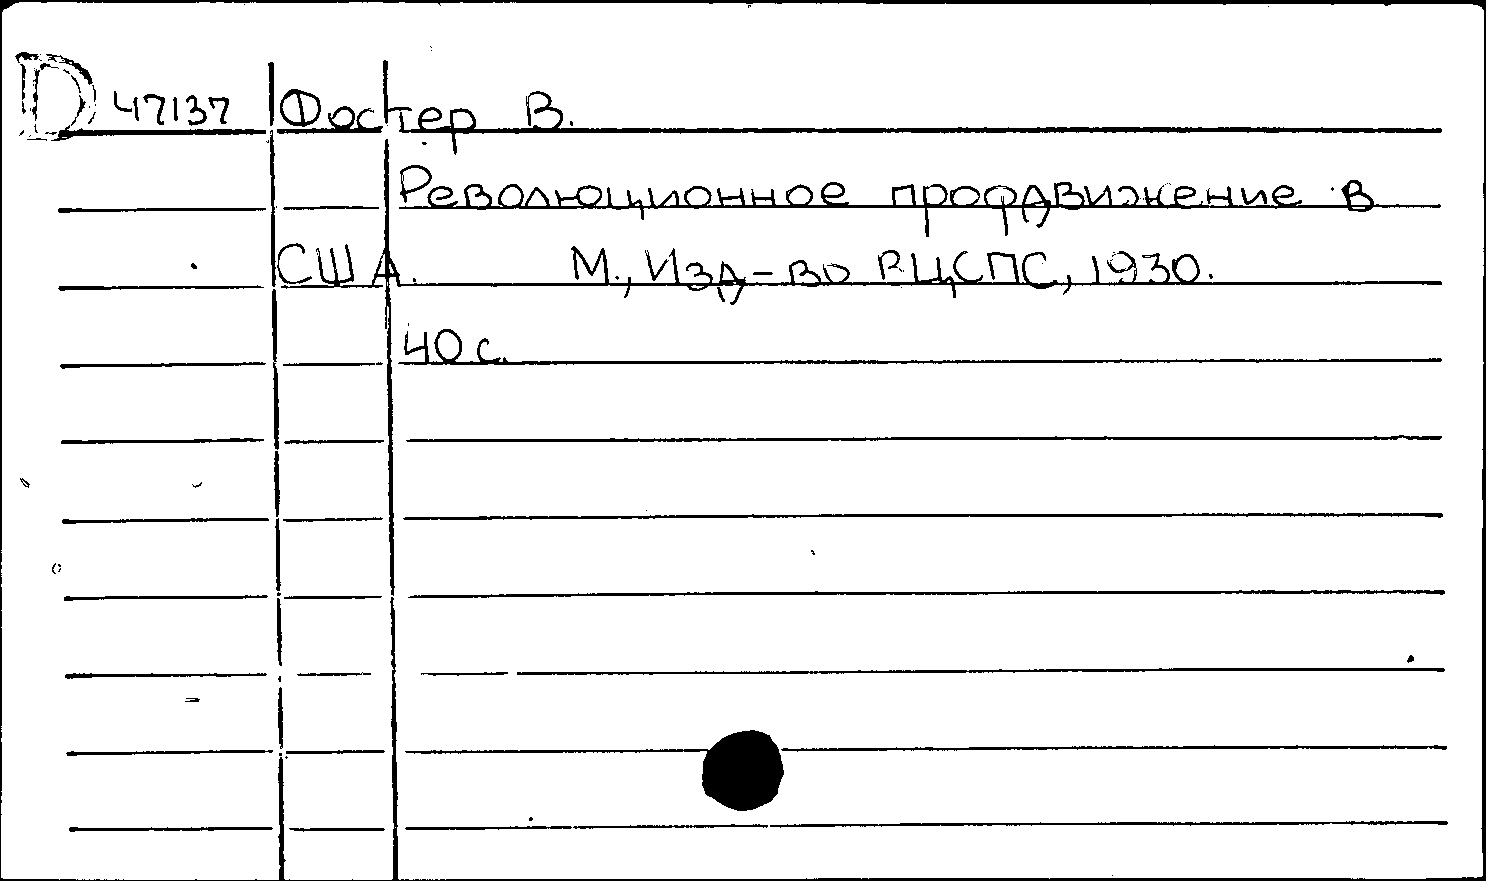 D 47137 Фостер В.
Революционное профдвижение в
США. М., Изд-во ВЦСПС, 1930.
40 с.